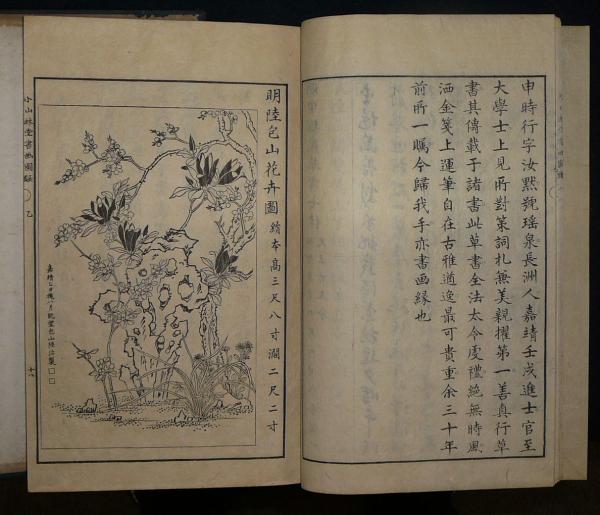 申時行字汝黙號瑶泉長洲人嘉靖壬戌進士官至
大學士上見所對策詞札無美親擢第一善真行草
書其傳載于諸書此草書全法太令虔禮絶無時風
洒金箋上運筆自在古雅遒逸最可貴重余三十年
前所一矚今歸我手亦書画縁也
明陸包山花卉圖 絹本高三尺八寸濶二尺二寸
小山林堂書画圖録 乙
十八